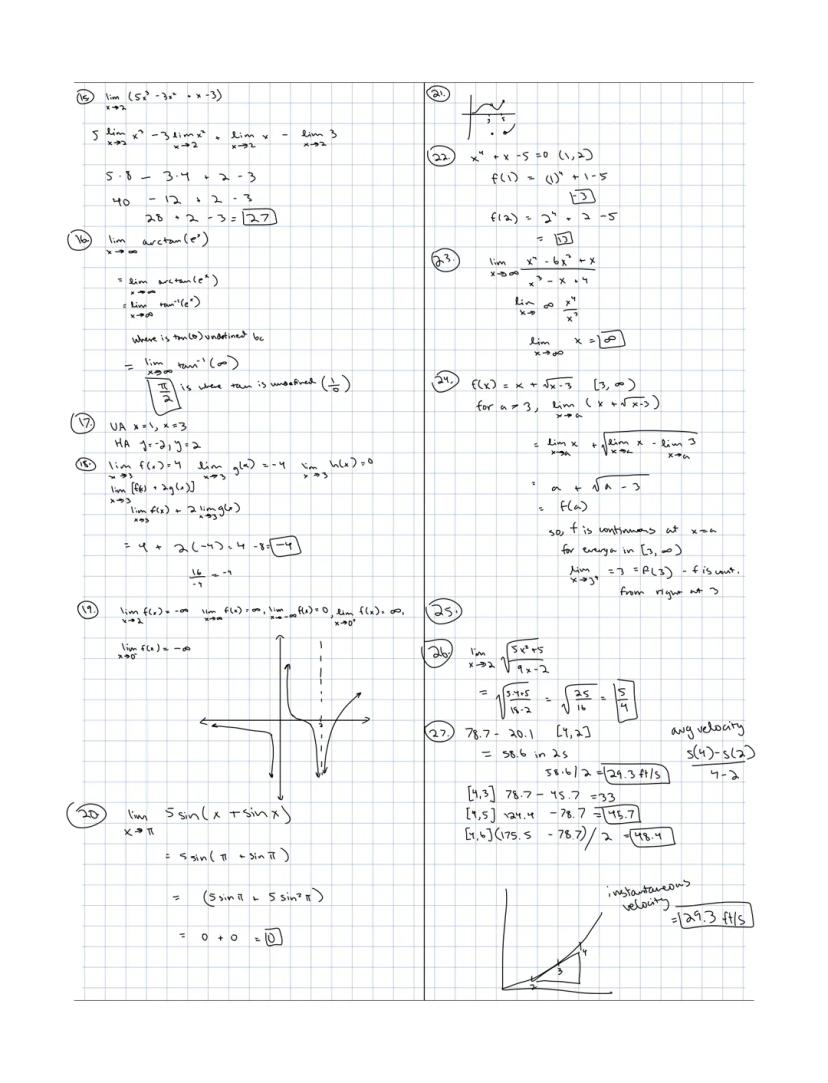 15. lim (5x³ - 3x² + x - 3)
x→2
5 lim x³ - 3 lim x² + lim x - lim 3
x→2 x→2 x→2 x→2
5·8 - 3·4 + 2 - 3
40 - 12 + 2 - 3
28 + 2 - 3 = 27
16. lim arctan(eˣ)
x→∞
= lim arctan(eˣ)
x→∞
= lim tan⁻¹(eˣ)
x→∞
where is tan(θ) undefined bc
= lim tan⁻¹(∞)
x→∞
π/2 is where tan is undefined (1/0)
17. VA x=1, x=3
HA y=-2, y=2
18. lim f(x)=4 lim g(x)=-4 lim h(x)=0
x→3 x→3 x→3
lim [f(x) + 2g(x)]
x→3
lim f(x) + 2 lim g(x)
x→3 x→3
= 4 + 2(-4) = 4 - 8 = -4
16/-4 = -4
19. lim f(x) = -∞ lim f(x) = ∞, lim f(x) = 0, lim f(x) = ∞,
x→2 x→∞ x→-∞ x→0⁺
lim f(x) = -∞
x→0⁻
2
20. lim 5 sin(x + sin x)
x→π
= 5 sin(π + sin π)
= (5 sin π + 5 sin² π)
= 0 + 0 = 0
21.
3 5
22. x⁴ + x - 5 = 0 (1,2)
f(1) = (1)⁴ + 1 - 5
-3
f(2) = 2⁴ + 2 - 5
= 13
23. lim x⁴ - 6x² + x
x→∞ x³ - x + 4
lim ∞ x⁴
x→ x³
lim x = ∞
x→∞
24. f(x) = x + √x-3 [3, ∞)
for a > 3, lim (x + √x-3)
x→a
= lim x + √lim x - lim 3
x→a x→a x→a
= a + √a - 3
= f(a)
so, f is continuous at x=a
for every a in [3, ∞)
lim = 3 = f(3) - f is cont.
x→3⁺
from right at 3
25.
26. lim √5x²+5
x→2 9x-2
= √5·4+5 / 18-2 = √25/16 = 5/4
27. 78.7 - 20.1 [4,2]
= 58.6 in 2s
58.6/2 = 29.3 ft/s
avg velocity
s(4)-s(2)
4-2
[4,3] 78.7 - 45.7 = 33
[4,5] 124.4 - 78.7 = 45.7
[4,6] (175.5 - 78.7)/2 = 48.4
instantaneous
velocity
= 29.3 ft/s
4
3
2